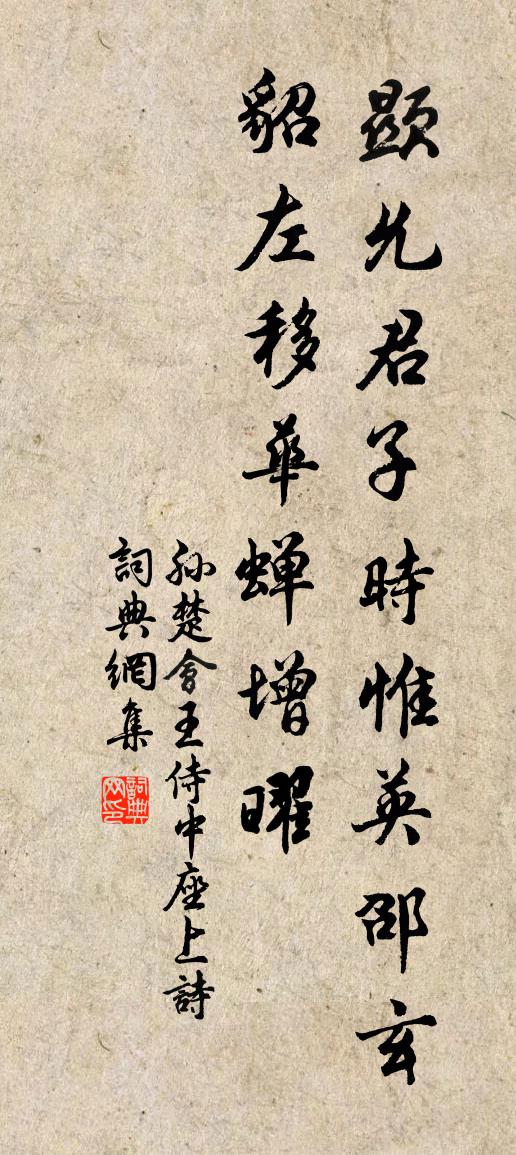 顯允君子時惟英邵玄
貂左移華蟬增曜
孫楚會王侍中座上詩
詞典網集
詞典网印